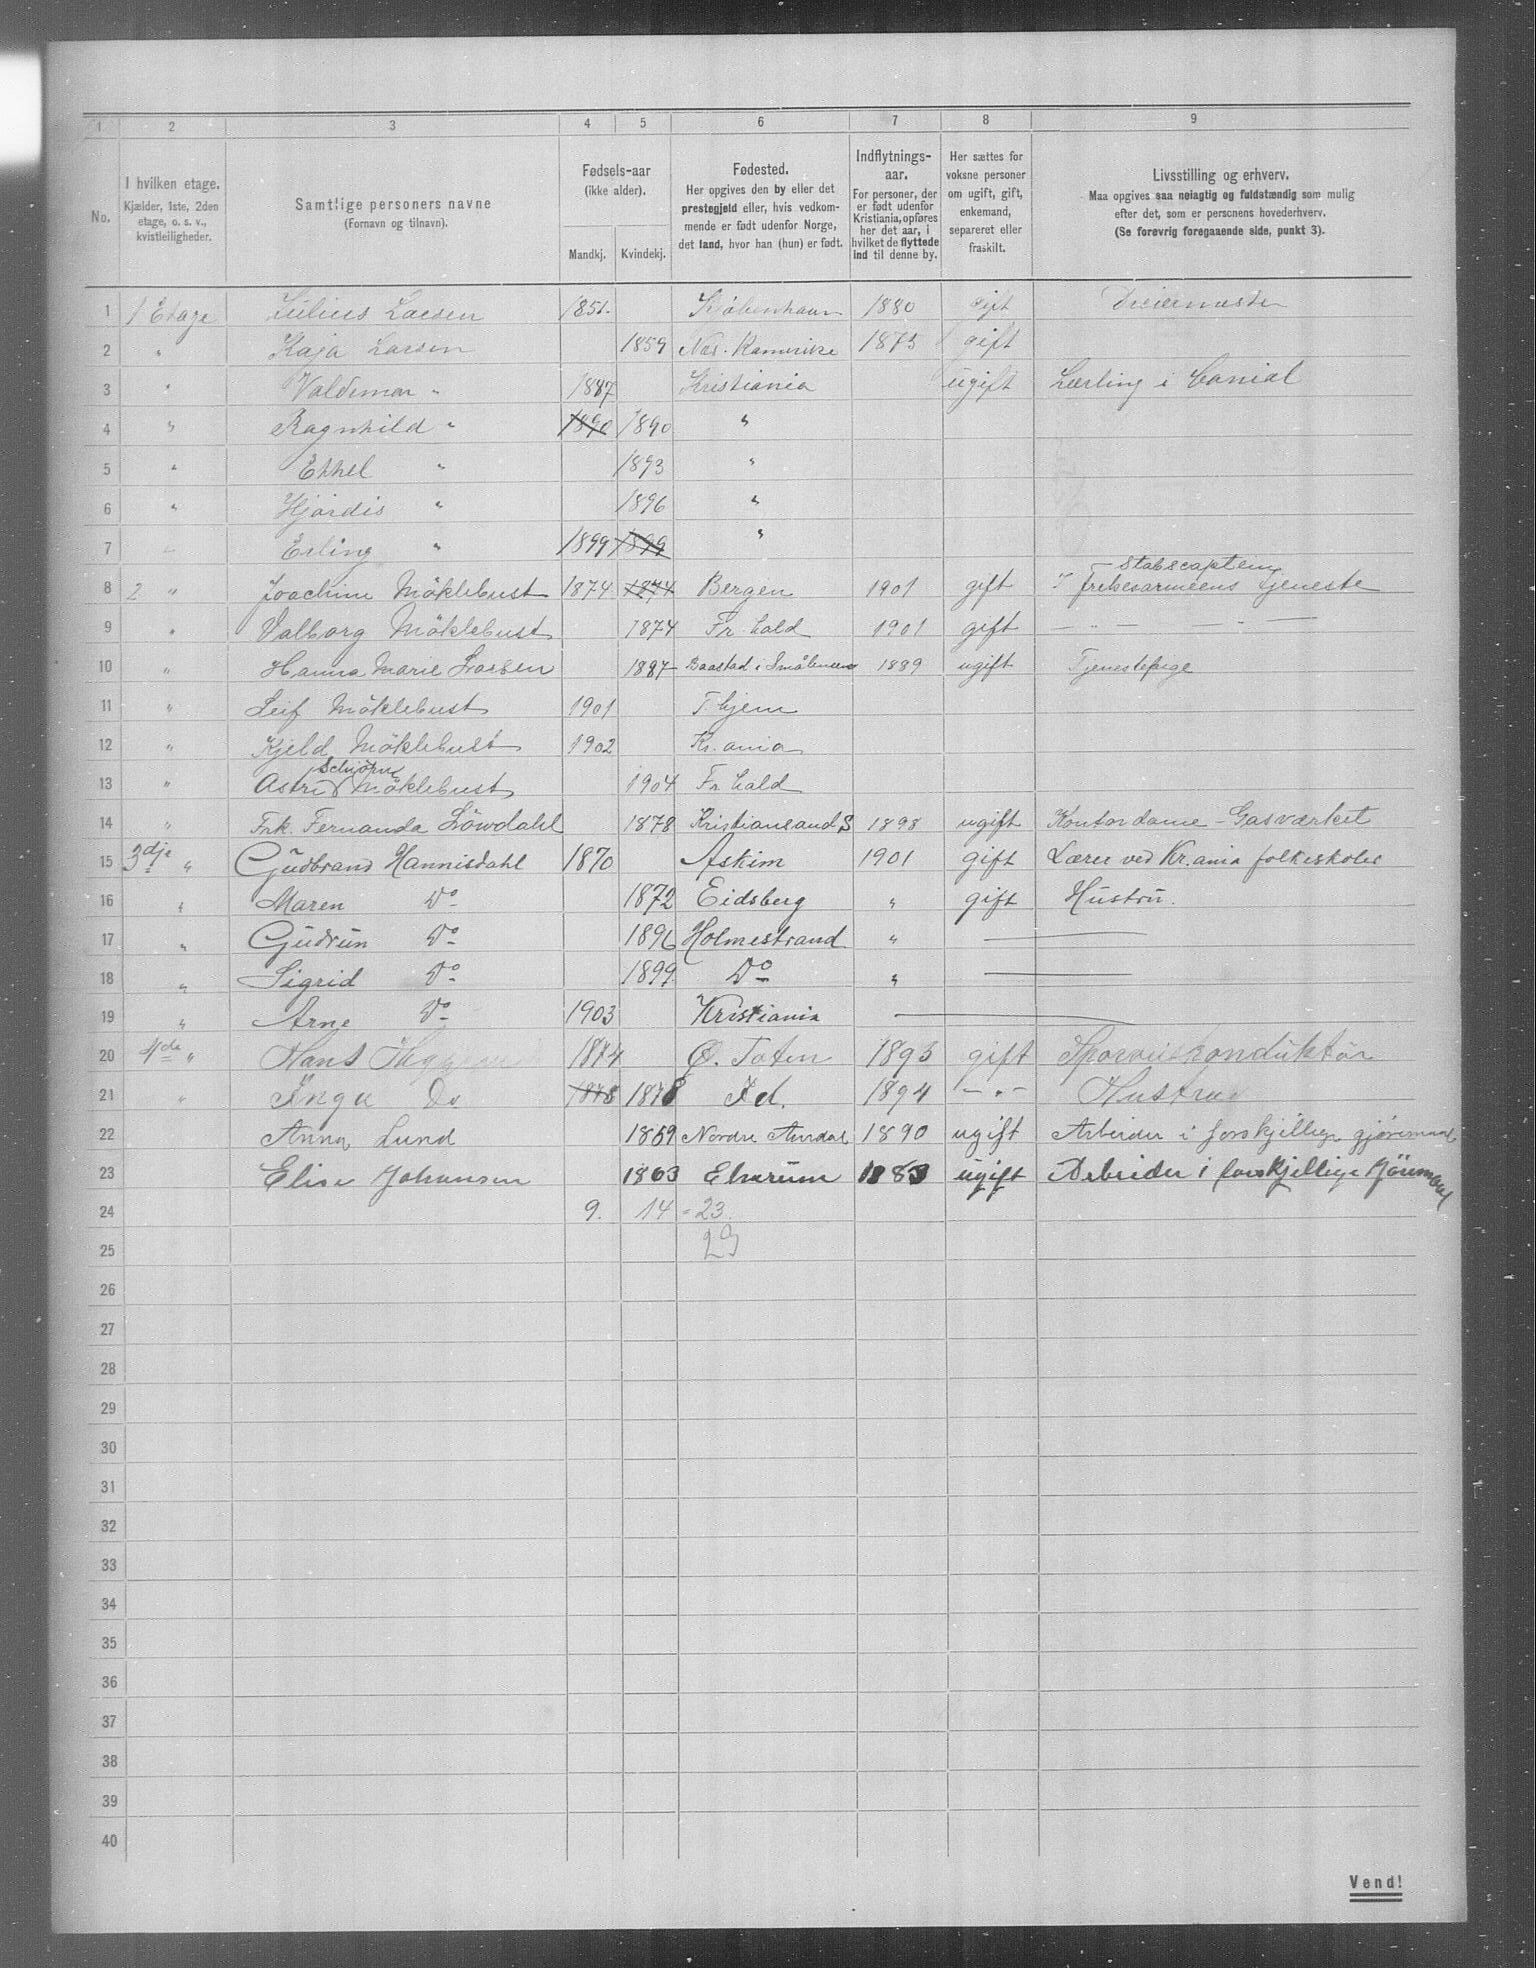 1 2 3 4 5 6 7 8 9
No.
I hvilken etage.
Kjælder, 1ste, 2den
etage, o. s. v.,
kvistleiligheder.
Samtlige personers navne
(Fornavn og tilnavn).
Fødsels-aar
(ikke alder).
Mandkj. Kvindekj.
Fødested.
Her opgives den by eller det
prestegjeld eller, hvis vedkom-
mende er født udenfor Norge,
det land, hvor han (hun) er født.
Indflytnings-
aar.
For personer, der
er født udenfor
Kristiania, opføres
her det aar, i
hvilket de flyttede
ind til denne by.
Her sættes for
voksne personer
om ugift, gift,
enkemand,
separeret eller
fraskilt.
Livsstilling og erhverv.
Maa opgives saa nøiagtig og fuldstændig som mulig
efter det, som er personens hovederhverv.
(Se forøvrig foregaaende side, punkt 3).
1 1 Etage Julius Larsen 1851. Kjøbenhavn 1880 gift Dreiermester
2 " Kaja Larsen 1859 Nes. Romerike 1873 gift
3 " Valdemar " 1887 Kristiania ugift Lærling i
4 " Ragnhild " 1890 1890 "
5 " Ethel " 1893 "
6 " Hjørdis " 1896 "
7 " Erling " 1899 1899 "
Stabscaptein
8 2 " Joachim Möklebust 1874 1874 Bergen 1901 gift I frelsesarmeens tjeneste
9 " Valborg Möklebust 1874 Fr. hald 1901 gift — " — " —
10 " Hanna Marie Larsen 1887 Baastad i Smålenene 1889 ugift Tjenestepige
11 " Leif Möklebust 1901 T. hjem
12 " Kjeld Möklebust 1902 Kr. ania
13 " Astrid Möklebust 1904 Fr. hald
14 " Frk. Fernanda Löwdahl 1878 Kristiansand S 1898 ugift Kontordame - Gasværket
15 3dje " Gudbrand Hannisdahl 1870 Askim 1901 gift Lærer ved Kr.ania folkeskoler
16 " Maren Do 1872 Eidsberg " gift Hustru.
17 " Gudrun Do 1896 Holmestrand " —
18 " Sigrid Do 1899 Do " —
19 " Arne Do 1903 Kristiania —
20 4de " Hans 1874 Ø. Toten 1893 gift Sporveiskonduktør
21 " Inga Do 1878 1878 Id. 1894 — " — Hustru
22 Anna Lund 1859 Nordre Aurdal 1890 ugift Arbeider i forskjellige gjøremaal
23 Elise Johansen 1863 Elverum 1883 ugift Arbeider i forskjellige Jöremaal
24 9. 14 = 23.
25 23
26
27
28
29
30
31
32
33
34
35
36
37
38
39
40
Vend!